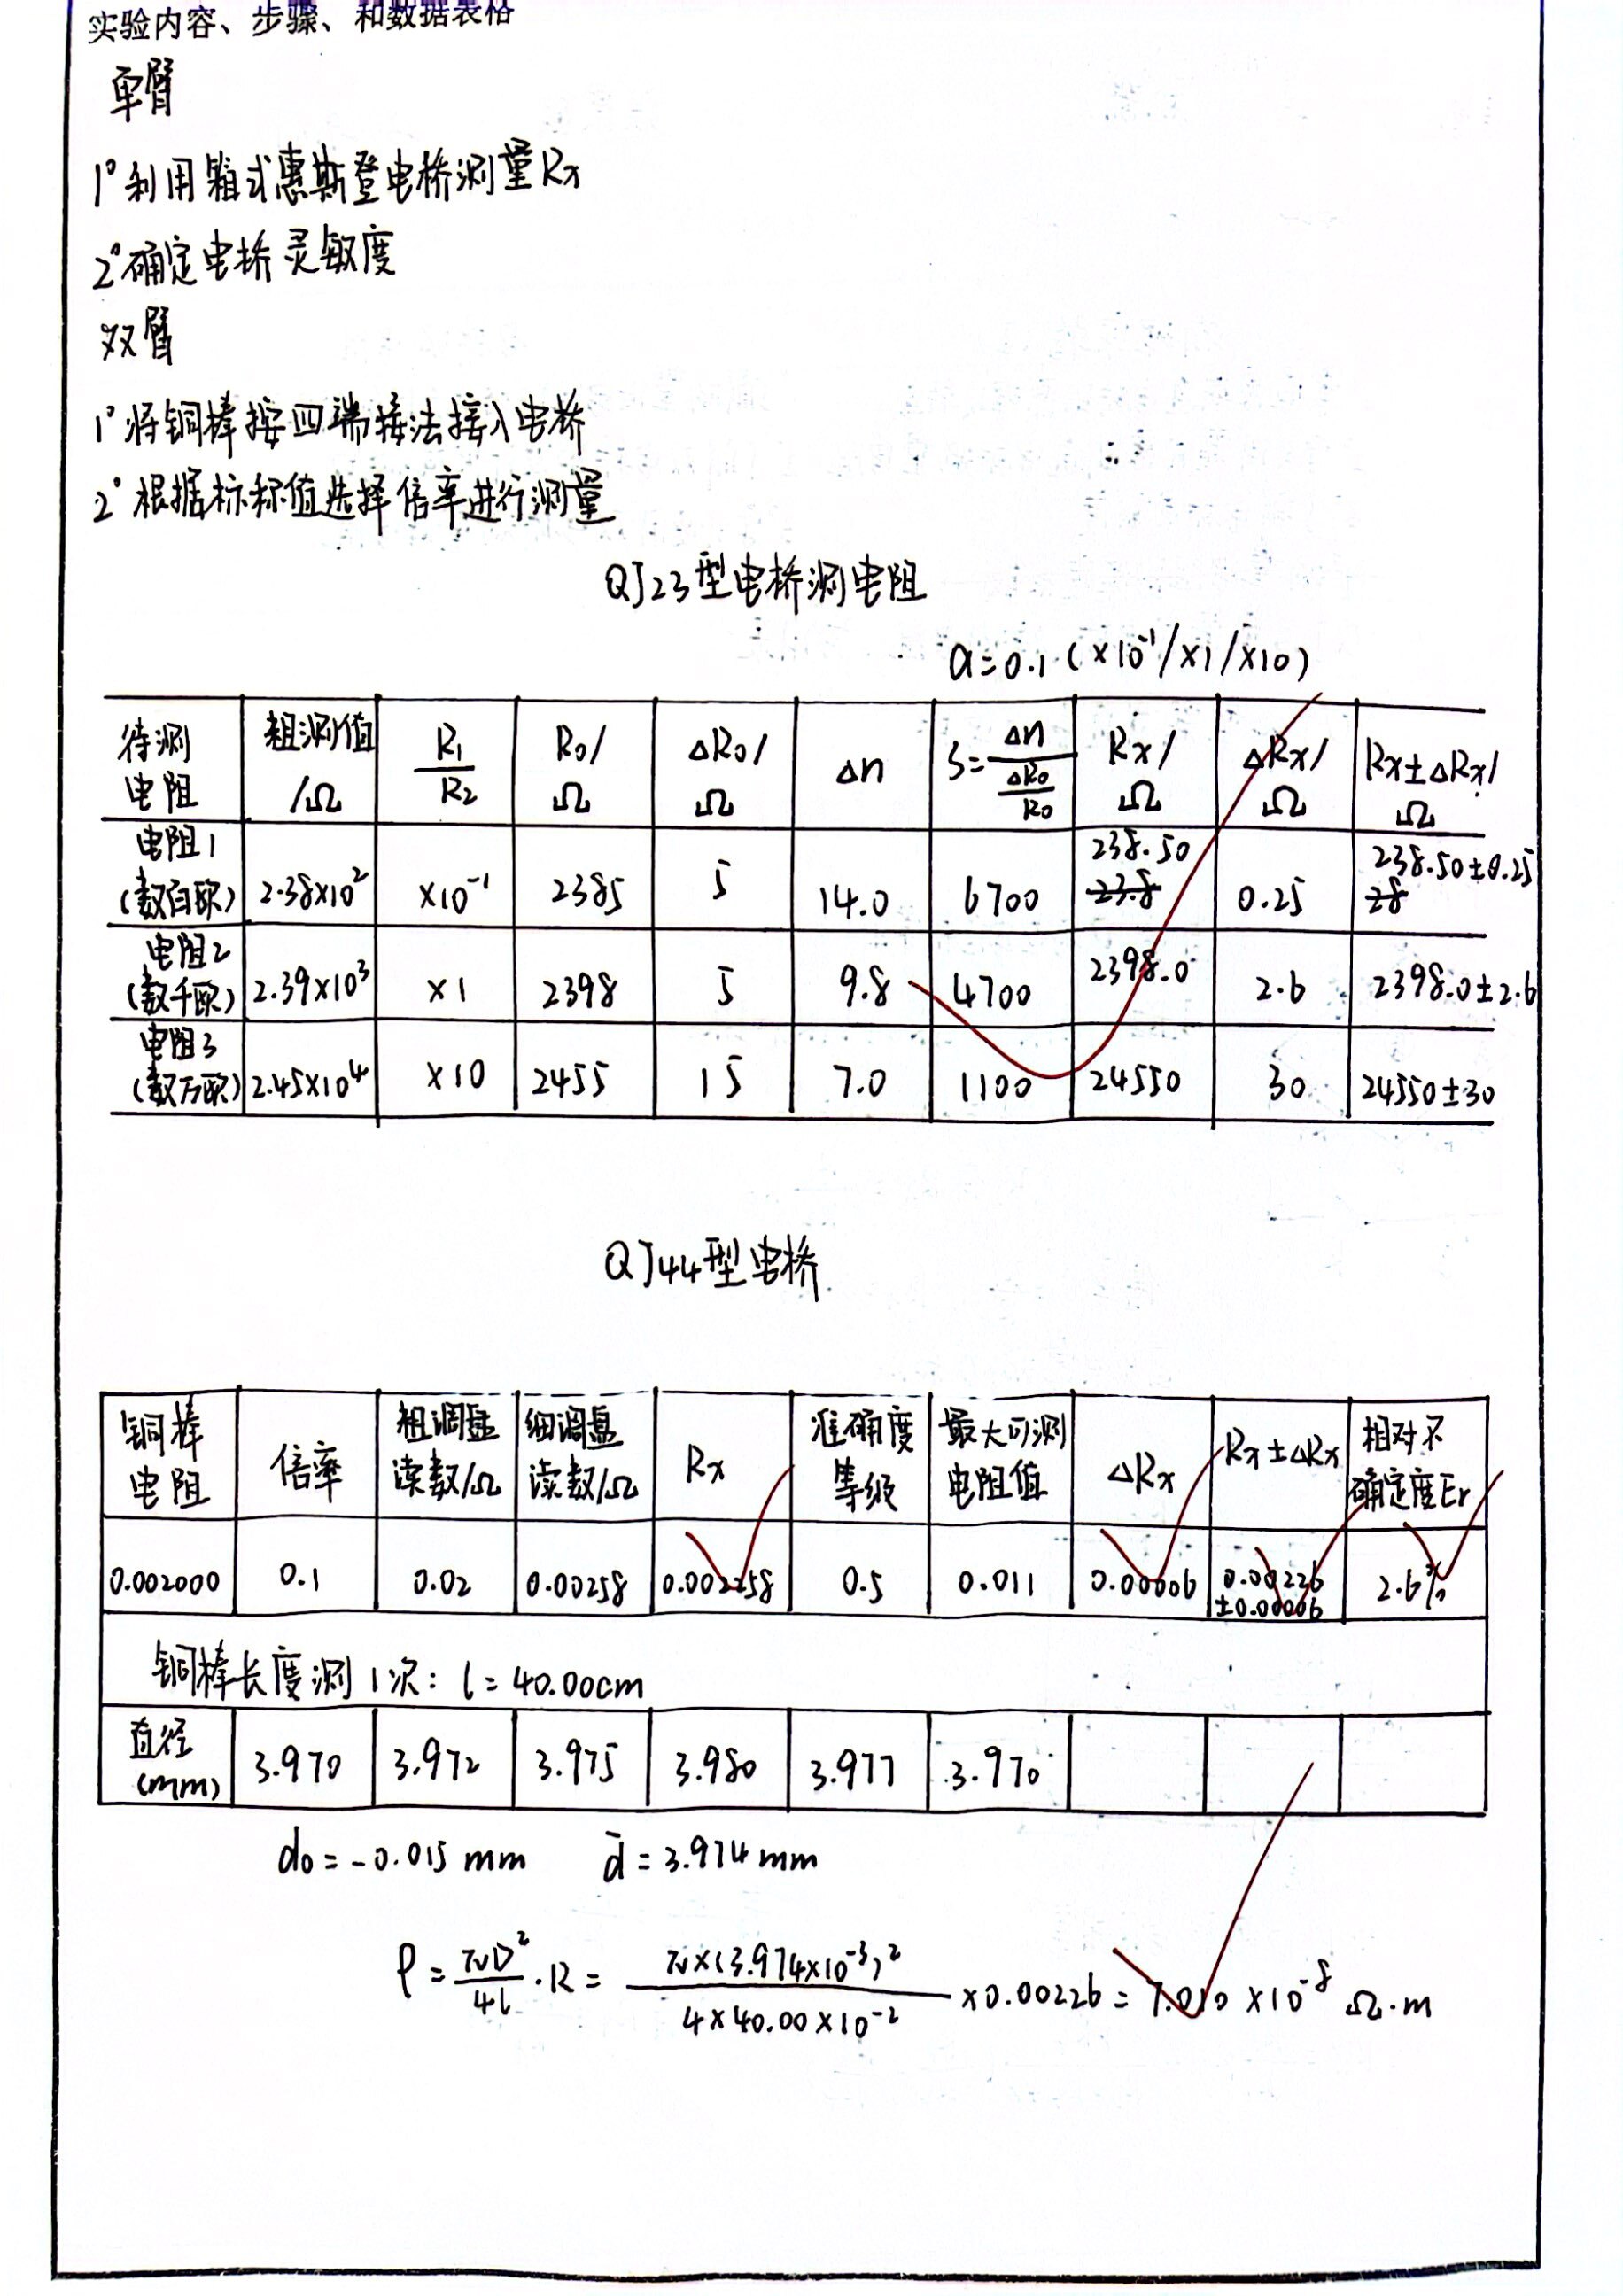 实验内容、步骤、和数据表格
单臂
1° 利用箱式惠斯登电桥测量Rx
2° 确定电桥灵敏度
双臂
1° 将铜棒按四端接法接入电桥
2° 根据标称值选择倍率进行测量
QJ23型电桥测电阻
a=0.1 (×10⁻¹/×1/×10)
待测电阻 粗测值/Ω R₁/R₂ R₀/Ω ΔR₀/Ω Δn S=Δn/(ΔR₀/R₀) Rx/Ω ΔRx/Ω Rx±ΔRx/Ω
电阻1(数百欧) 2.38×10² ×10⁻¹ 2385 5 14.0 6700 238.50 0.25 238.50±0.25
电阻2(数千欧) 2.39×10³ ×1 2398 5 9.8 4700 2398.0 2.6 2398.0±2.6
电阻3(数万欧) 2.45×10⁴ ×10 2455 15 7.0 1100 24550 30 24550±30
QJ44型电桥
铜棒电阻 倍率 粗调盘读数/Ω 细调盘读数/Ω Rx 准确度等级 最大可测电阻值 ΔRx Rx±ΔRx 相对不确定度Er
0.002000 0.1 0.02 0.00258 0.002258 0.5 0.011 0.00006 0.00226±0.00006 2.6%
铜棒长度测1次: l=40.00cm
直径(mm) 3.970 3.972 3.975 3.980 3.977 3.970
d₀=-0.015mm d̄=3.974mm
ρ=πD²/4l·R=π×(3.974×10⁻³)²/4×40.00×10⁻²×0.00226=7.010×10⁻⁸Ω·m